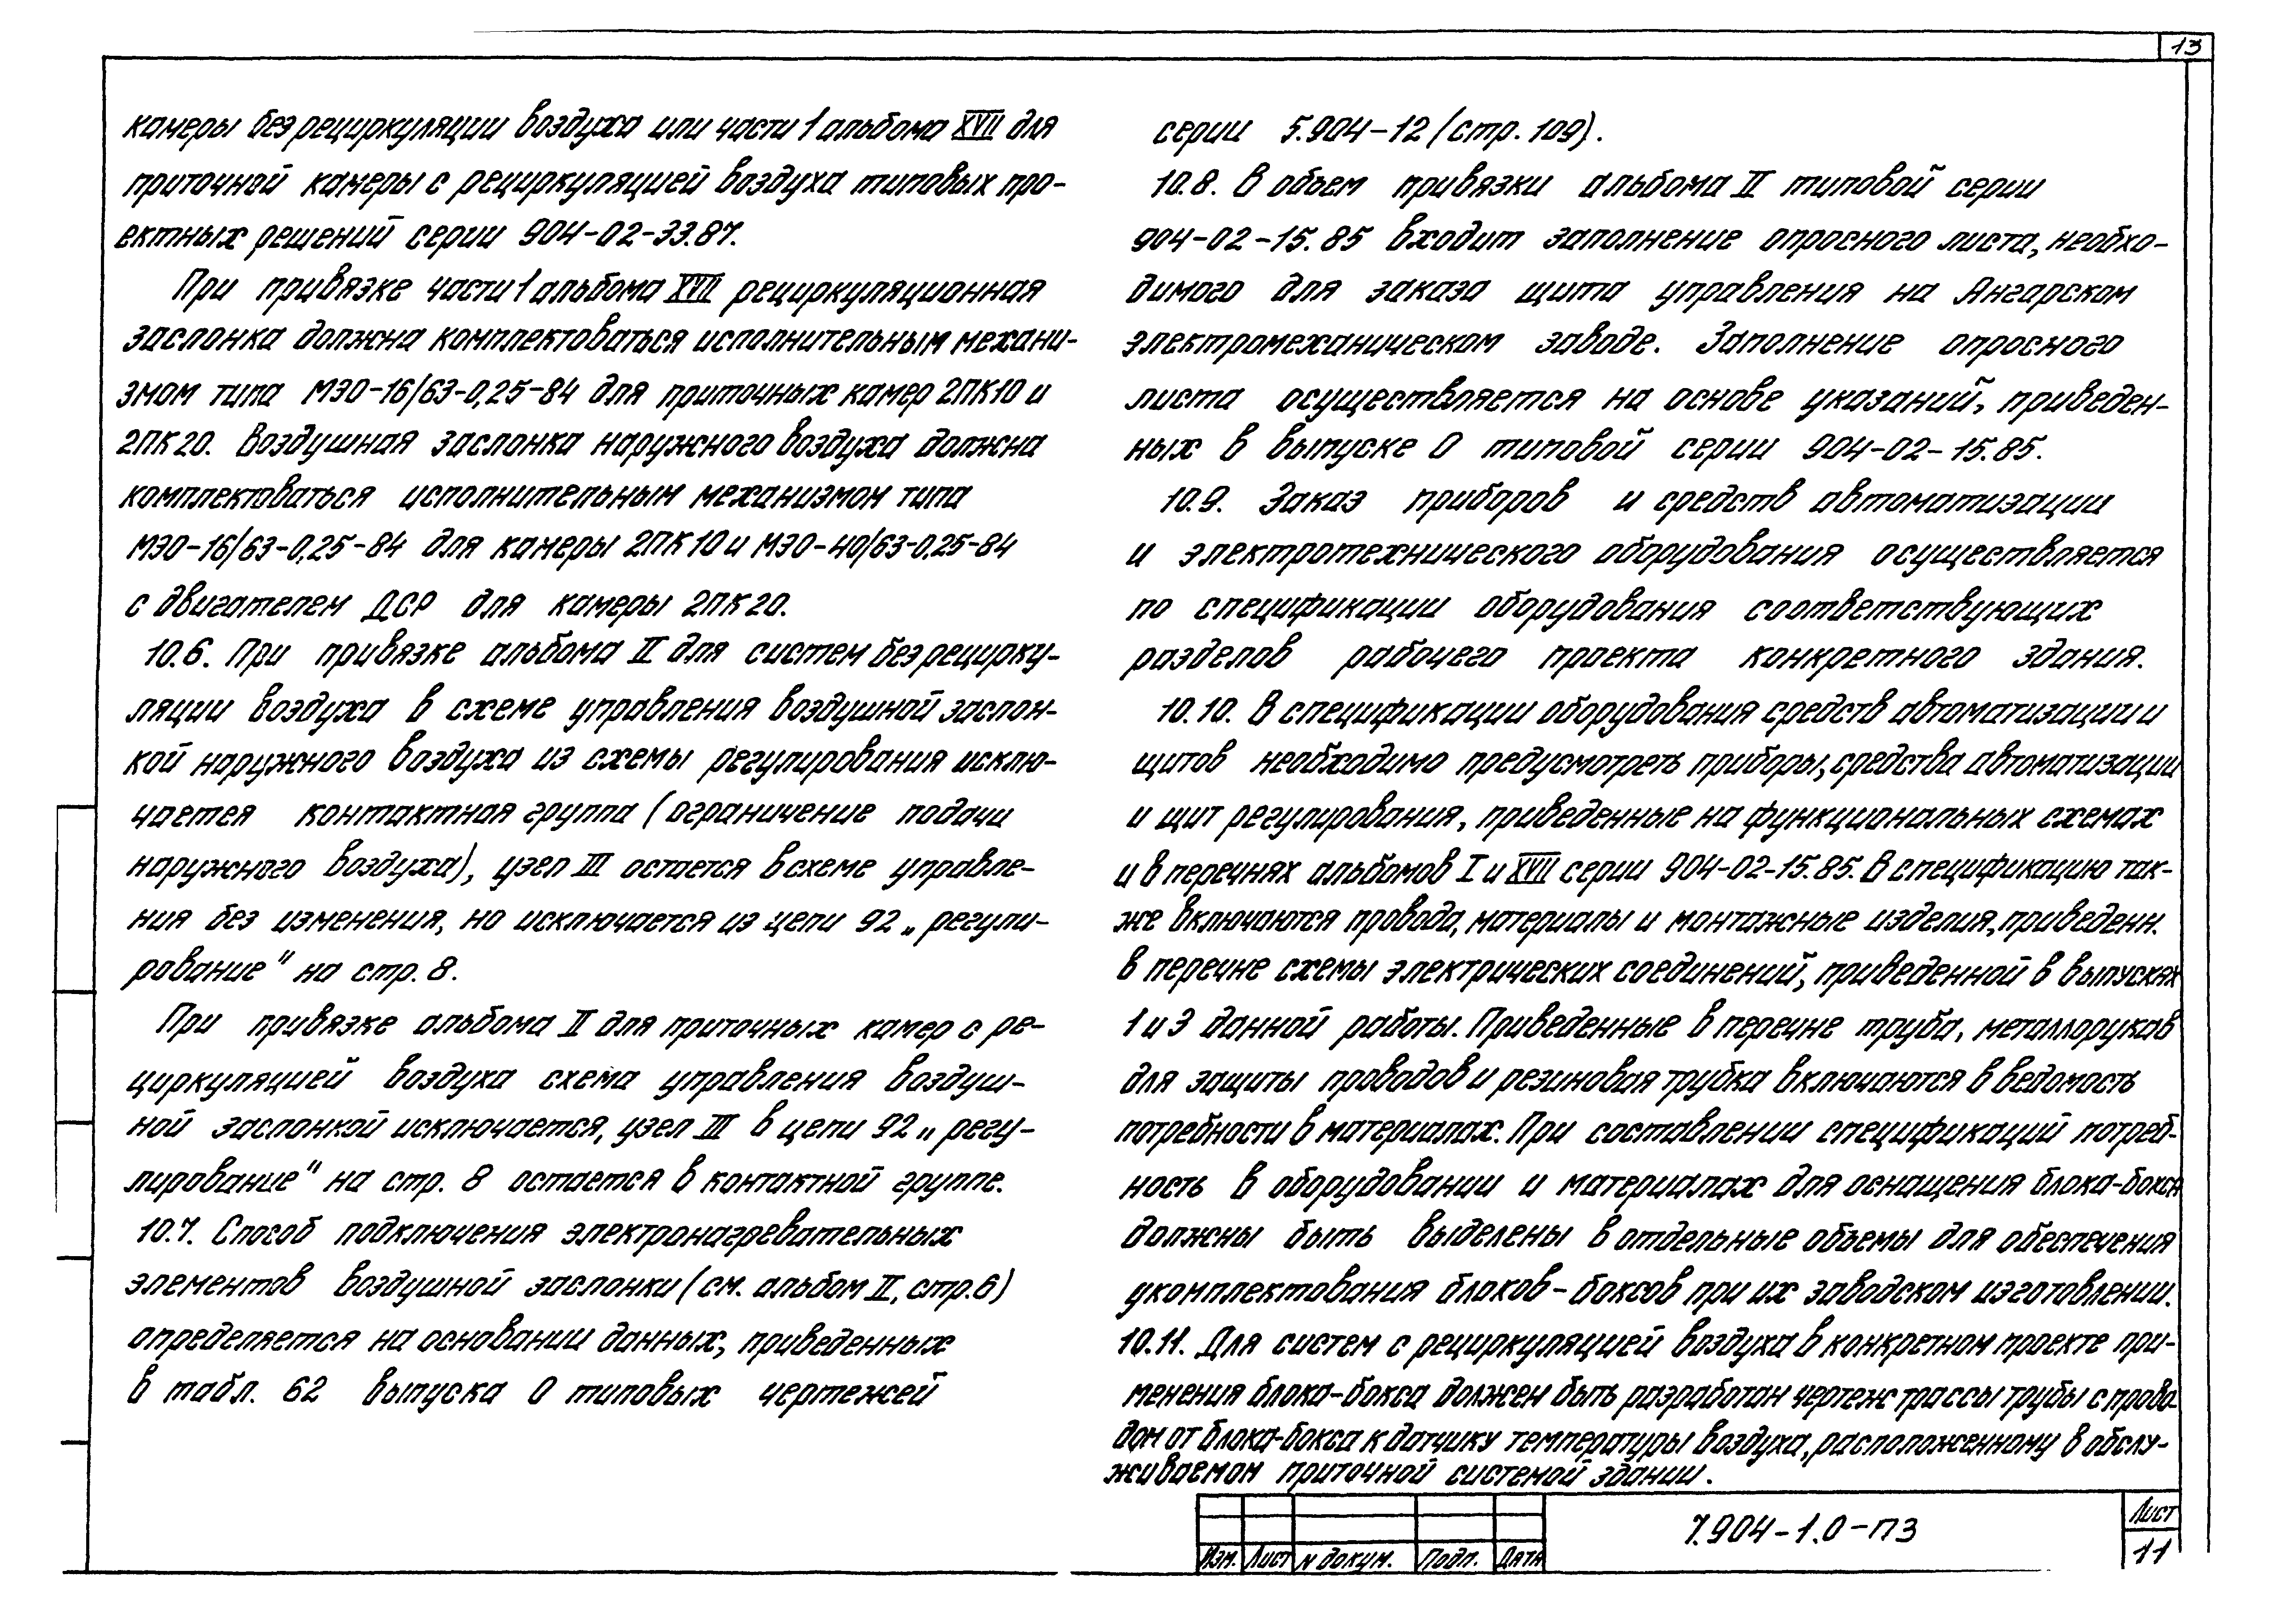 13
камеры без рециркуляции воздуха или части 1 альбома XVII для
приточной камеры с рециркуляцией воздуха типовых про-
ектных решений серии 904-02-33.87.
При привязке части 1 альбома XVII рециркуляционная
заслонка должна комплектоваться исполнительным механи-
змом типа МЭО-16/63-0,25-84 для приточных камер 2ПК10 и
2ПК20. Воздушная заслонка наружного воздуха должна
комплектоваться исполнительным механизмом типа
МЭО-16/63-0,25-84 для камеры 2ПК10 и МЭО-40/63-0,25-84
с двигателем ДСР для камеры 2ПК20.
10.6. При привязке альбома II для систем без рецирку-
ляции воздуха в схеме управления воздушной заслон-
кой наружного воздуха из схемы регулирования исклю-
чается контактная группа (ограничение подачи
наружного воздуха), узел III остается в схеме управле-
ния без изменения, но исключается из цепи 92 „регули-
рование" на стр. 8.
При привязке альбома II для приточных камер с ре-
циркуляцией воздуха схема управления воздуш-
ной заслонкой исключается, узел III в цепи 92 „регу-
лирование" на стр. 8 остается в контактной группе.
10.7. Способ подключения электронагревательных
элементов воздушной заслонки (см. альбом II, стр.6)
определяется на основании данных, приведенных
в табл. 62 выпуска 0 типовых чертежей
серии 5.904-12 (стр. 109).
10.8. В объем привязки альбома II типовой серии
904-02-15.85 входит заполнение опросного листа, необхо-
димого для заказа щита управления на Ангарском
электромеханическом заводе. Заполнение опросного
листа осуществляется на основе указаний, приведен-
ных в выпуске 0 типовой серии 904-02-15.85.
10.9. Заказ приборов и средств автоматизации
и электротехнического оборудования осуществляется
по спецификации оборудования соответствующих
разделов рабочего проекта конкретного здания.
10.10. В спецификации оборудования средств автоматизации и
щитов необходимо предусмотреть приборы, средства автоматизации
и щит регулирования, приведенные на функциональных схемах
и в перечнях альбомов I и XVII серии 904-02-15.85. В спецификацию так-
же включаются провода, материалы и монтажные изделия, приведенн.
в перечне схемы электрических соединений, приведенной в выпусках
1 и 3 данной работы. Приведенные в перечне труба, металлорукав
для защиты проводов и резиновая трубка включаются в ведомость
потребности в материалах. При составлении спецификаций потреб-
ность в оборудовании и материалах для оснащения блока-бокса
должны быть выделены в отдельные объемы для обеспечения
укомплектования блоков-боксов при их заводском изготовлении.
10.11. Для систем с рециркуляцией воздуха в конкретном проекте при-
менения блока-бокса должен быть разработан чертеж трассы трубы с прово-
дом от блока-бокса к датчику температуры воздуха, расположенному в обслу-
живаемом приточной системой здании.
7.904-1.0-ПЗ
Лист
11
Изм. Лист N докум. Подп. Дата